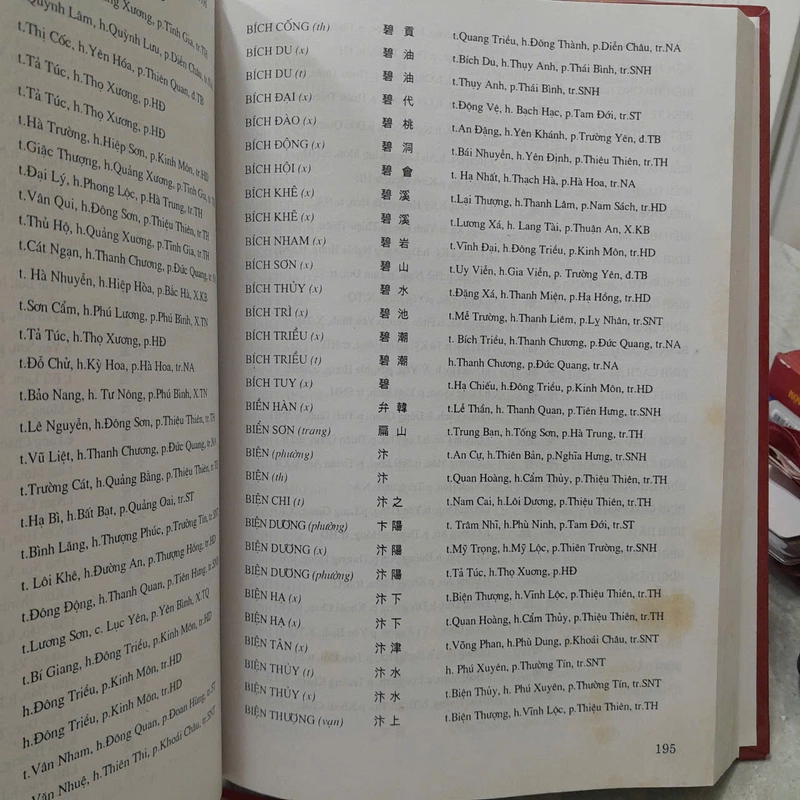 Quảng Xương, p.Tĩnh Gia, tr.TH
Quỳnh Lâm, h.Quỳnh Lưu, p.Diễn Châu,
t.Thị Cốc, h.Yên Hóa, p.Thiên Quan, đ.TB
t.Tả Túc, h.Thọ Xương, p.HĐ
t.Tả Túc, h.Thọ Xương, p.HĐ
t.Hà Trường, h.Hiệp Sơn, p.Kinh Môn, tr.HD
t.Giặc Thượng, h.Quảng Xương, p.Tĩnh Gia,
t.Đại Lý, h.Phong Lộc, p.Hà Trung, tr.TH
t.Vân Qui, h.Đông Sơn, p.Thiệu Thiên, tr.TH
t.Thủ Hộ, h.Quảng Xương, p.Tĩnh Gia, tr.TH
t.Cát Ngạn, h.Thanh Chương, p.Đức Quang,
t. Hà Nhuyễn, h.Hiệp Hòa, p.Bắc Hà, X.KB
t.Sơn Cẩm, h.Phú Lương, p.Phú Bình, X.TN
t.Tả Túc, h.Thọ Xương, p.HĐ
t.Đỗ Chử, h.Kỳ Hoa, p.Hà Hoa, tr.NA
t.Bảo Nang, h. Tư Nông, p.Phú Bình, X.TN
t.Lê Nguyễn, h.Đông Sơn, p.Thiệu Thiên, tr.TH
t.Vũ Liệt, h.Thanh Chương, p.Đức Quang, tr.NA
t.Trường Cát, h.Quảng Bằng, p.Thiệu Thiên, tr.TH
t.Hạ Bì, h.Bất Bạt, p.Quảng Oai, tr.ST
t.Bình Lăng, h.Thượng Phúc, p.Trường Tín, tr.SNT
t. Lôi Khê, h.Đường An, p.Thượng Hồng, tr.HD
t.Đông Động, h.Thanh Quan, p.Tiên Hưng, tr.SNH
t.Lương Sơn, c. Lục Yên, p.Yên Bình, X.TQ
t.Bí Giang, h.Đông Triều, p.Kinh Môn, tr.HD
h.Đông Triều, p.Kinh Môn, tr.HD
h.Đông Triều, p.Kinh Môn, tr.HD
t.Vân Nham, h.Đông Quan, p.Đoan Hùng, tr.ST
t.Vân Nhuệ, h.Thiên Thi, p.Khoái Châu, tr.SNT
BÍCH CỐNG (th) 碧 貢 t.Quang Triều, h.Đông Thành, p.Diễn Châu, tr.NA
BÍCH DU (x) 碧 油 t.Bích Du, h.Thụy Anh, p.Thái Bình, tr.SNH
BÍCH DU (t) 碧 油 t.Thụy Anh, p.Thái Bình, tr.SNH
BÍCH ĐẠI (x) 碧 代 t.Động Vệ, h. Bạch Hạc, p.Tam Đới, tr.ST
BÍCH ĐÀO (x) 碧 桃 t.An Đặng, h.Yên Khánh, p.Trường Yên, đ.TB
BÍCH ĐỘNG (x) 碧 洞 t.Bái Nhuyễn, h.Yên Định, p.Thiệu Thiên, tr.TH
BÍCH HÔI (x) 碧 會 t. Hạ Nhất, h.Thạch Hà, p.Hà Hoa, tr.NA
BÍCH KHÊ (x) 碧 溪 t.Lại Thượng, h.Thanh Lâm, p.Nam Sách, tr.HD
BÍCH KHÊ (x) 碧 溪 t.Lương Xá, h. Lang Tài, p.Thuận An, X.KB
BÍCH NHAM (x) 碧 岩 t.Vĩnh Đại, h.Đông Triều, p.Kinh Môn, tr.HD
BÍCH SƠN (x) 碧 山 t.Uy Viễn, h.Gia Viễn, p. Trường Yên, đ.TB
BÍCH THỦY (x) 碧 水 t.Đặng Xá, h.Thanh Miện, p.Hạ Hồng, tr.HD
BÍCH TRÌ (x) 碧 池 t.Mễ Trường, h.Thanh Liêm, p.Lỵ Nhân, tr.SNT
BÍCH TRIỀU (x) 碧 潮 t. Bích Triều, h.Thanh Chương, p.Đức Quang, tr.NA
BÍCH TRIỀU (t) 碧 潮 h.Thanh Chương, p.Đức Quang, tr.NA
BÍCH TUY (x) 碧 t.Hạ Chiếu, h.Đông Triều, p.Kinh Môn, tr.HD
BIỀN HÀN (x) 弁 韓 t.Lễ Thần, h. Thanh Quan, p.Tiên Hưng, tr.SNH
BIỂN SƠN (trang) 扁 山 t.Trung Bạn, h.Tống Sơn, p.Hà Trung, tr.TH
BIỆN (phường) 汴 t.An Cự, h.Thiên Bản, p.Nghĩa Hưng, tr.SNH
BIỆN (th) 汴 t.Quan Hoàng, h.Cẩm Thủy, p.Thiệu Thiên, tr.TH
BIỆN CHI (t) 汴 之 t.Nam Cai, h.Lôi Dương, p.Thiệu Thiên, tr.TH
BIỆN DƯƠNG (phường) 卞 陽 t. Trâm Nhĩ, h.Phù Ninh, p.Tam Đới, tr.ST
BIỆN DƯƠNG (x) 汴 陽 t.Mỹ Trọng, h.Mỹ Lộc, p.Thiên Trường, tr.SNH
BIỆN DƯƠNG (phường) 汴 陽 t.Tả Túc, h.Thọ Xương, p.HĐ
BIỆN HẠ (x) 汴 下 t.Biện Thượng, h.Vĩnh Lộc, p.Thiệu Thiên, tr.TH
BIỆN HẠ (x) 汴 下 t.Quan Hoàng, h.Cẩm Thủy, p.Thiệu Thiên, tr.TH
BIỆN TÂN (x) 汴 津 t.Võng Phan, h.Phù Dung, p.Khoái Châu, tr.SNT
BIỆN THỦY (t) 汴 水 h. Phú Xuyên, p.Thường Tín, tr.SNT
BIỆN THỦY (x) 汴 水 t.Biện Thủy, h. Phú Xuyên, p.Thường Tín, tr.SNT
BIỆN THƯỢNG (vạn) 汴 上 t.Biện Thượng, h.Vĩnh Lộc, p.Thiệu Thiên, tr.TH
195